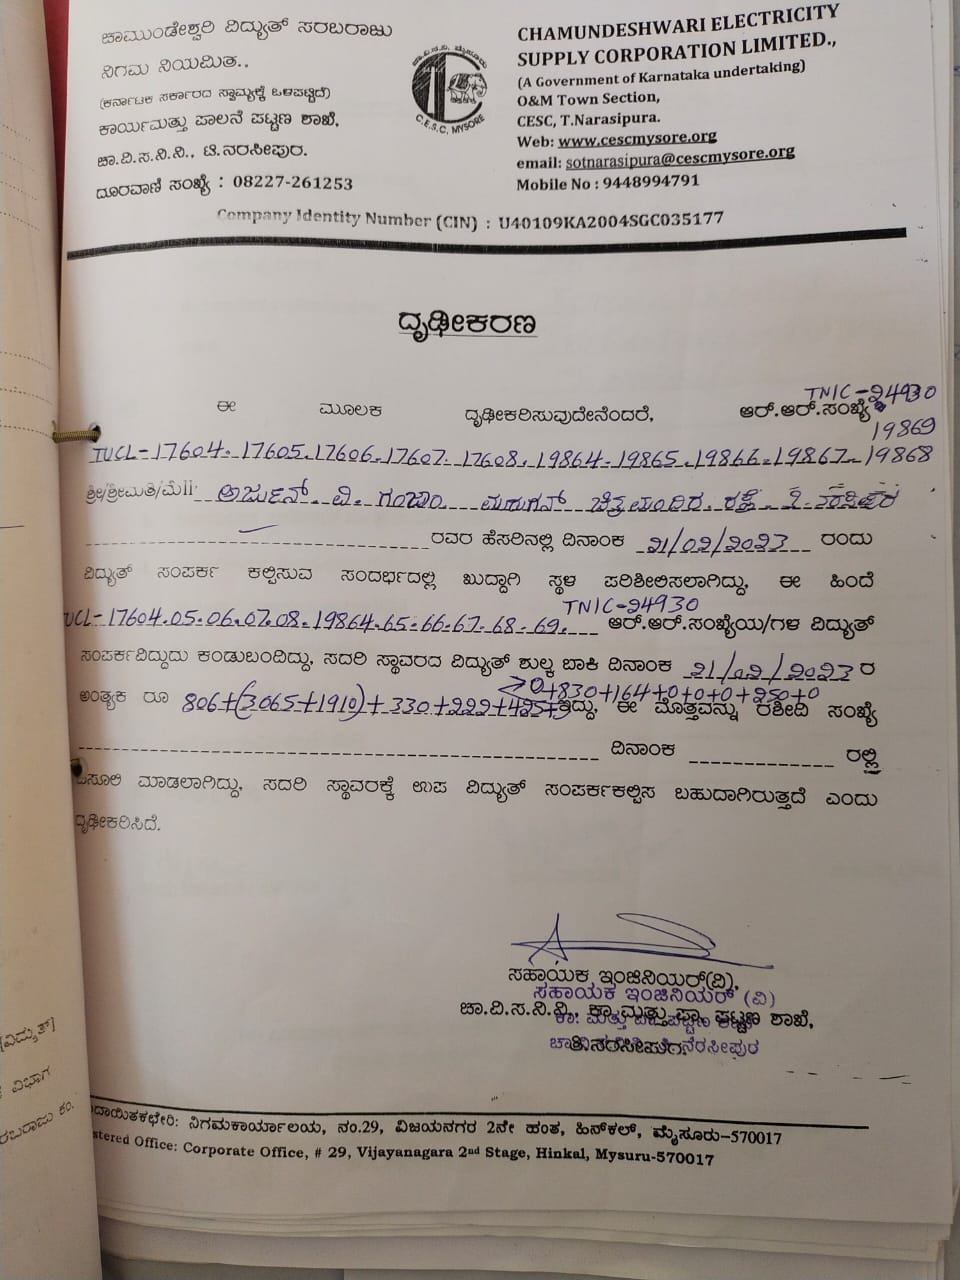 ಚಾಮುಂಡೇಶ್ವರಿ ವಿದ್ಯುತ್ ಸರಬರಾಜು
ನಿಗಮ ನಿಯಮಿತ.,
(ಕರ್ನಾಟಕ ಸರ್ಕಾರದ ಸ್ವಾಮ್ಯಕ್ಕೆ ಒಳಪಟ್ಟಿದೆ)
ಕಾರ್ಯಮತ್ತು ಪಾಲನೆ ಪಟ್ಟಣ ಶಾಖೆ,
ಚಾ.ವಿ.ಸ.ನಿ.ನಿ., ಟಿ.ನರಸೀಪುರ.
ದೂರವಾಣಿ ಸಂಖ್ಯೆ : 08227-261253
C.E.S.C, MYSORE
CHAMUNDESHWARI ELECTRICITY
SUPPLY CORPORATION LIMITED.,
(A Government of Karnataka undertaking)
O&M Town Section,
CESC, T.Narasipura.
Web: www.cescmysore.org
email: sotnarasipura@cescmysore.org
Mobile No : 9448994791
Company Identity Number (CIN) : U40109KA2004SGC035177
ದೃಢೀಕರಣ
TNIC-24930
ಈ ಮೂಲಕ ದೃಢೀಕರಿಸುವುದೇನೆಂದರೆ, ಆರ್.ಆರ್.ಸಂಖ್ಯೆ
19869
TUCL-17604. 17605. 17606. 17607. 17608. 19864. 19865. 19866. 19867. 19868
ಶ್ರೀ/ಶ್ರೀಮತಿ/ಮೆ|| ಅರ್ಜುನ್ ವಿ. ಗಂಜಾಂ ಮುರುಗನ್ ಚಿತ್ರಮಂದಿರ
ರವರ ಹೆಸರಿನಲ್ಲಿ ದಿನಾಂಕ 21/02/2023 ರಂದು
ವಿದ್ಯುತ್ ಸಂಪರ್ಕ ಕಲ್ಪಿಸುವ ಸಂದರ್ಭದಲ್ಲಿ ಖುದ್ದಾಗಿ ಸ್ಥಳ ಪರಿಶೀಲಿಸಲಾಗಿದ್ದು, ಈ ಹಿಂದೆ
TNIC-24930
TUCL-17604.05.06.07.08.19864.65.66.67.68.69. ಆರ್.ಆರ್.ಸಂಖ್ಯೆಯ/ಗಳ ವಿದ್ಯುತ್
ಸಂಪರ್ಕವಿದ್ದುದು ಕಂಡುಬಂದಿದ್ದು, ಸದರಿ ಸ್ಥಾವರದ ವಿದ್ಯುತ್ ಶುಲ್ಕ ಬಾಕಿ ದಿನಾಂಕ 21/02/2023 ರ
0+830+164+0+0+0+250+0
ಅಂತ್ಯಕ ರೂ 806+(3065+1910)+330+222+425+ ಇದ್ದು, ಈ ಮೊತ್ತವನ್ನು ರಶೀದಿ ಸಂಖ್ಯೆ
ದಿನಾಂಕ ರಲ್ಲಿ
ವಸೂಲಿ ಮಾಡಲಾಗಿದ್ದು, ಸದರಿ ಸ್ಥಾವರಕ್ಕೆ ಉಪ ವಿದ್ಯುತ್ ಸಂಪರ್ಕಕಲ್ಪಿಸ ಬಹುದಾಗಿರುತ್ತದೆ ಎಂದು
ದೃಢೀಕರಿಸಿದೆ.
ಸಹಾಯಕ ಇಂಜಿನಿಯರ್(ವಿ),
ಸಹಾಯಕ ಇಂಜಿನಿಯರ್ (ವಿ)
ಚಾ.ವಿ.ಸ.ನಿ.ನಿ., ಕಾ ಮತ್ತು ಪಾ ಪಟ್ಟಣ ಶಾಖೆ,
ದಾಯಿತಕಛೇರಿ: ನಿಗಮಕಾರ್ಯಾಲಯ, ನಂ.29, ವಿಜಯನಗರ 2ನೇ ಹಂತ, ಹಿನ್‌ಕಲ್, ಮೈಸೂರು-570017
stered Office: Corporate Office, # 29, Vijayanagara 2nd Stage, Hinkal, Mysuru-570017
ವಿದ್ಯುತ್]
ವಿಭಾಗ